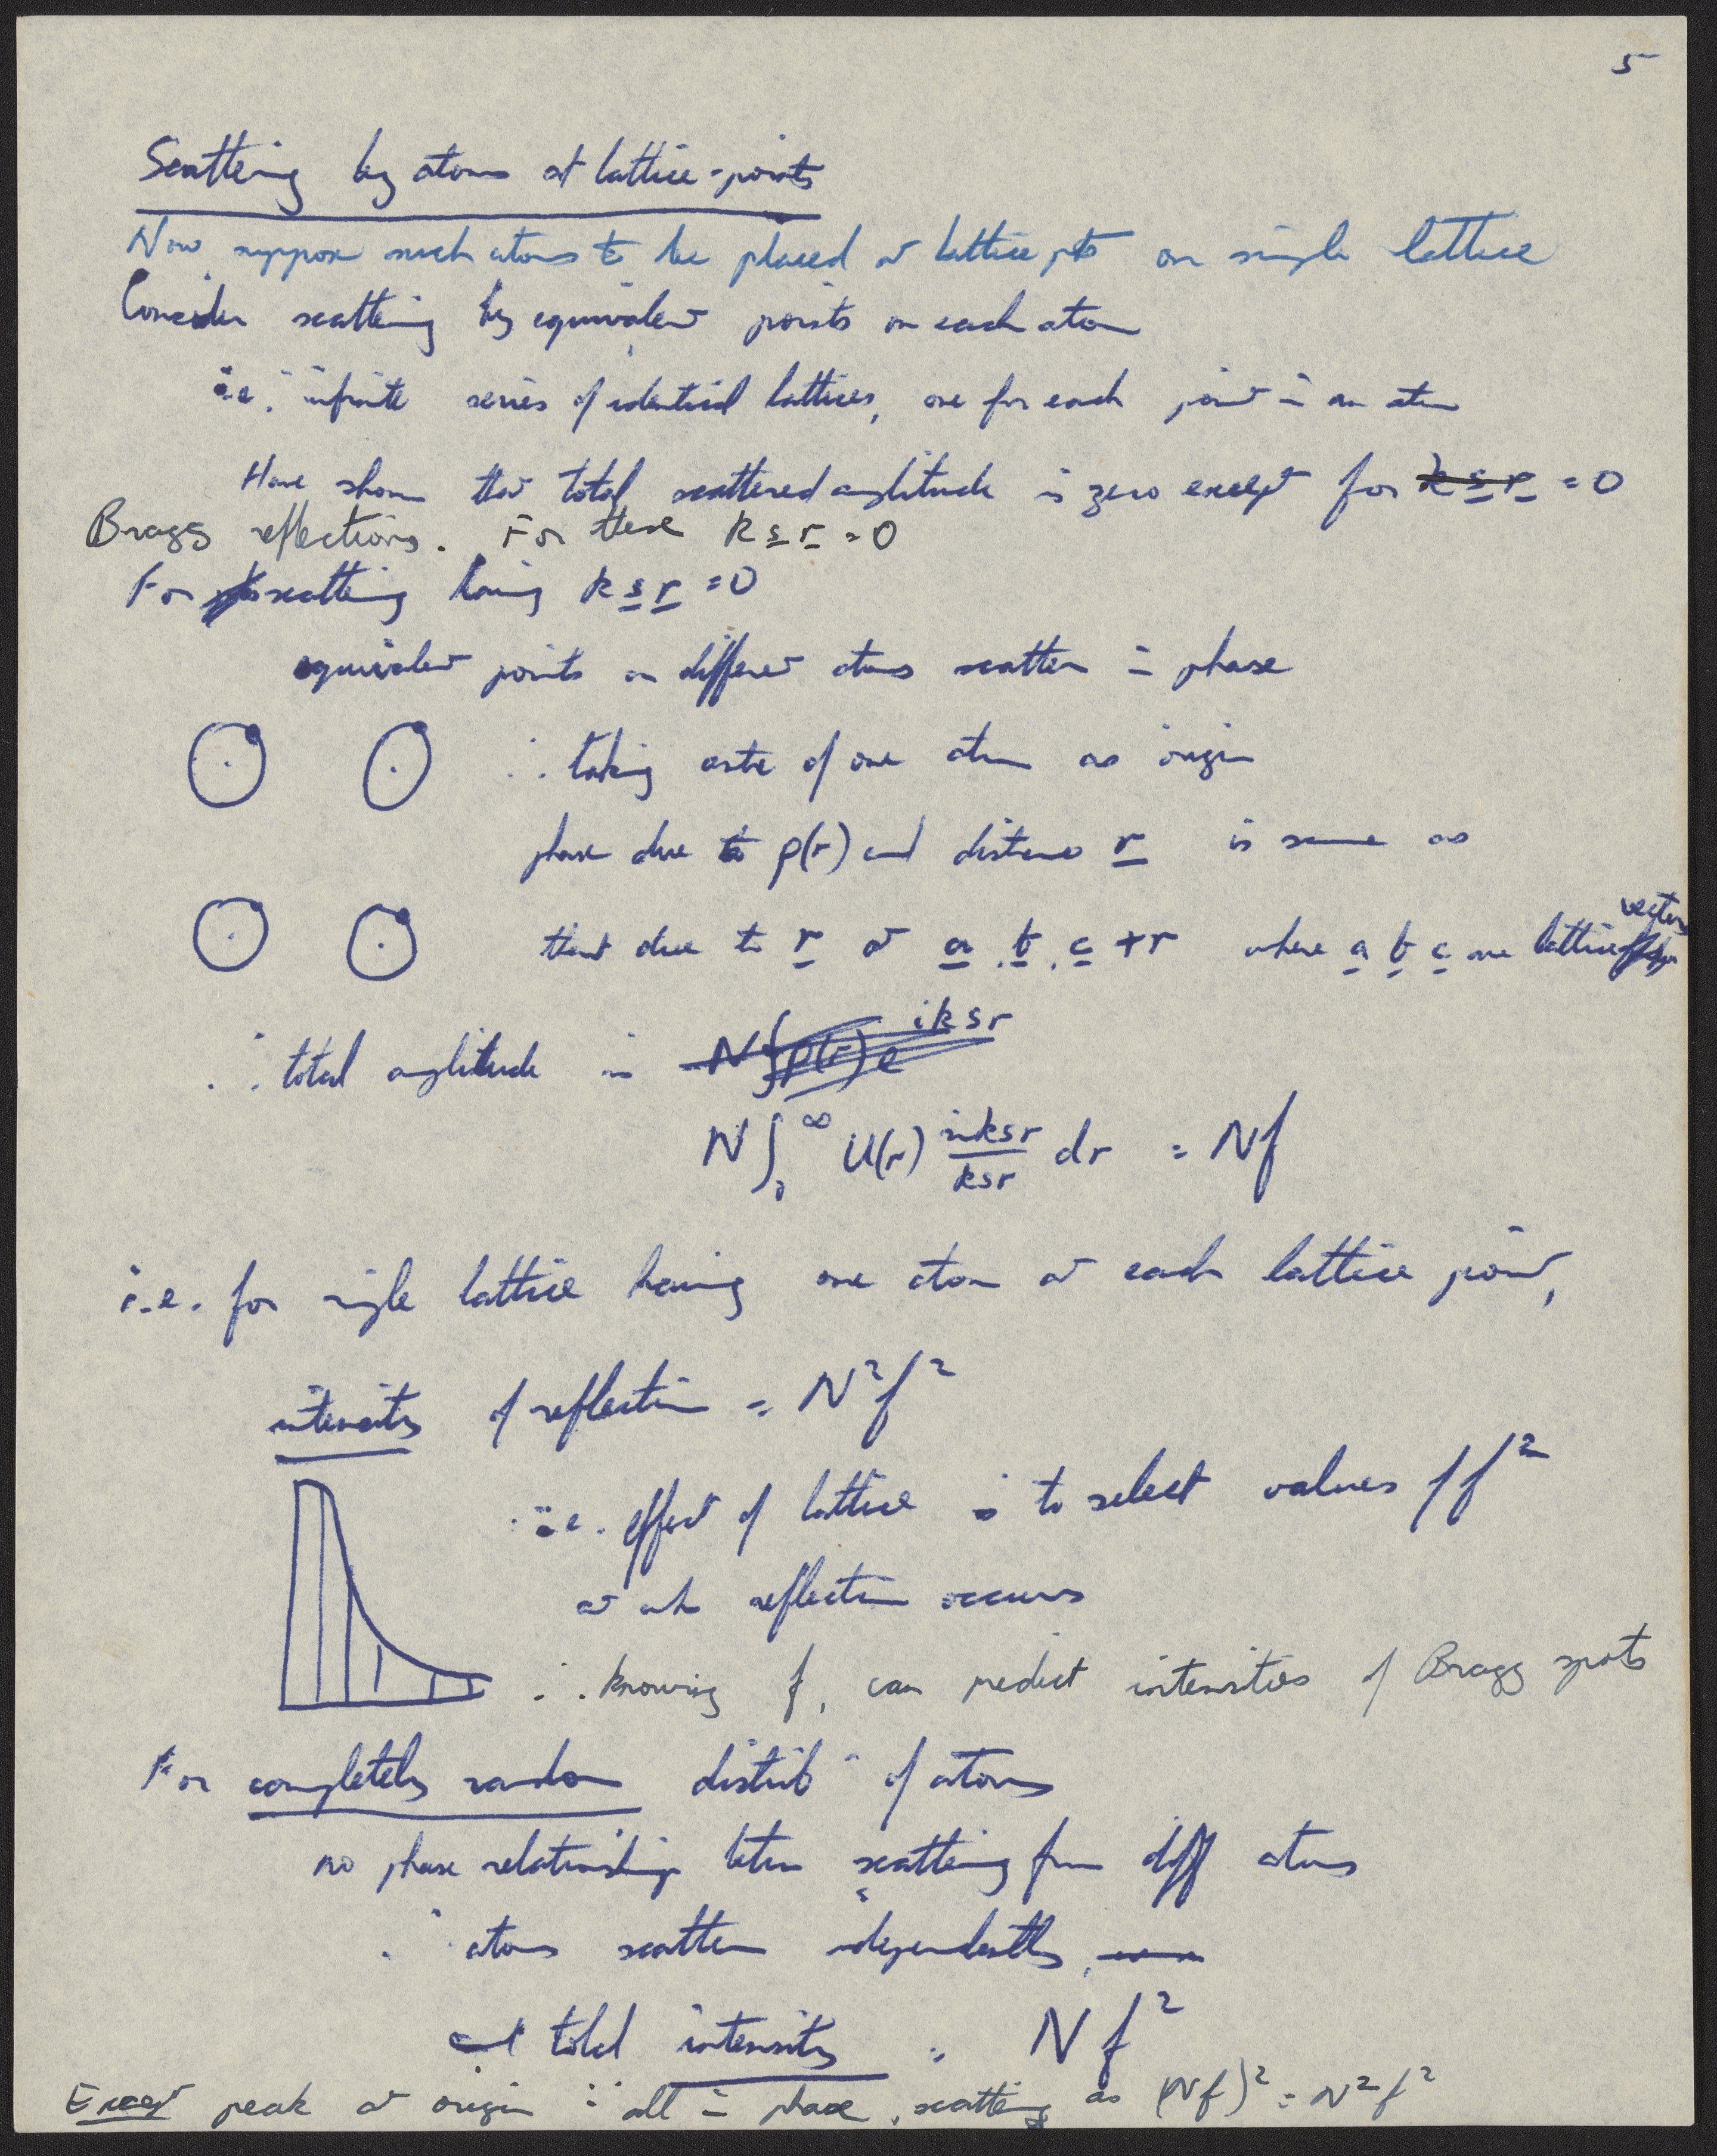 5
Scattering by atoms at lattice-points
Now suppose such atoms to be placed at lattice pts on single lattice
Consider scattering by equivalent points on each atom
i.e. infinite series of identical lattices, one for each point in an atom
Have shown that total scattered amplitude is zero except for k s r = 0
Bragg reflections. For these k s r = 0
For scattering having k s r = 0
equivalent points on different atoms scatter in phase
∴ taking centre of one atom as origin
phase due to ρ(r) and distance r is same as
that due to r at a, b, c + r where a b c are lattice vectors
∴ total amplitude is N∫ρ(r)e^{iksr}
N∫₀^∞ U(r) sin ksr/ksr dr = Nf
i.e. for single lattice having one atom at each lattice point,
intensity of reflection = N²f²
i.e. effect of lattice is to select values of f²
at wh reflection occurs
∴ knowing f, can predict intensities of Bragg spots
For completely random distribⁿ of atoms
no phase relationship betw scattering from diff atoms
∴ atoms scatter independently,
and total intensity = N f²
Except peak at origin ∵ all in phase, scattering as (Nf)² = N²f²